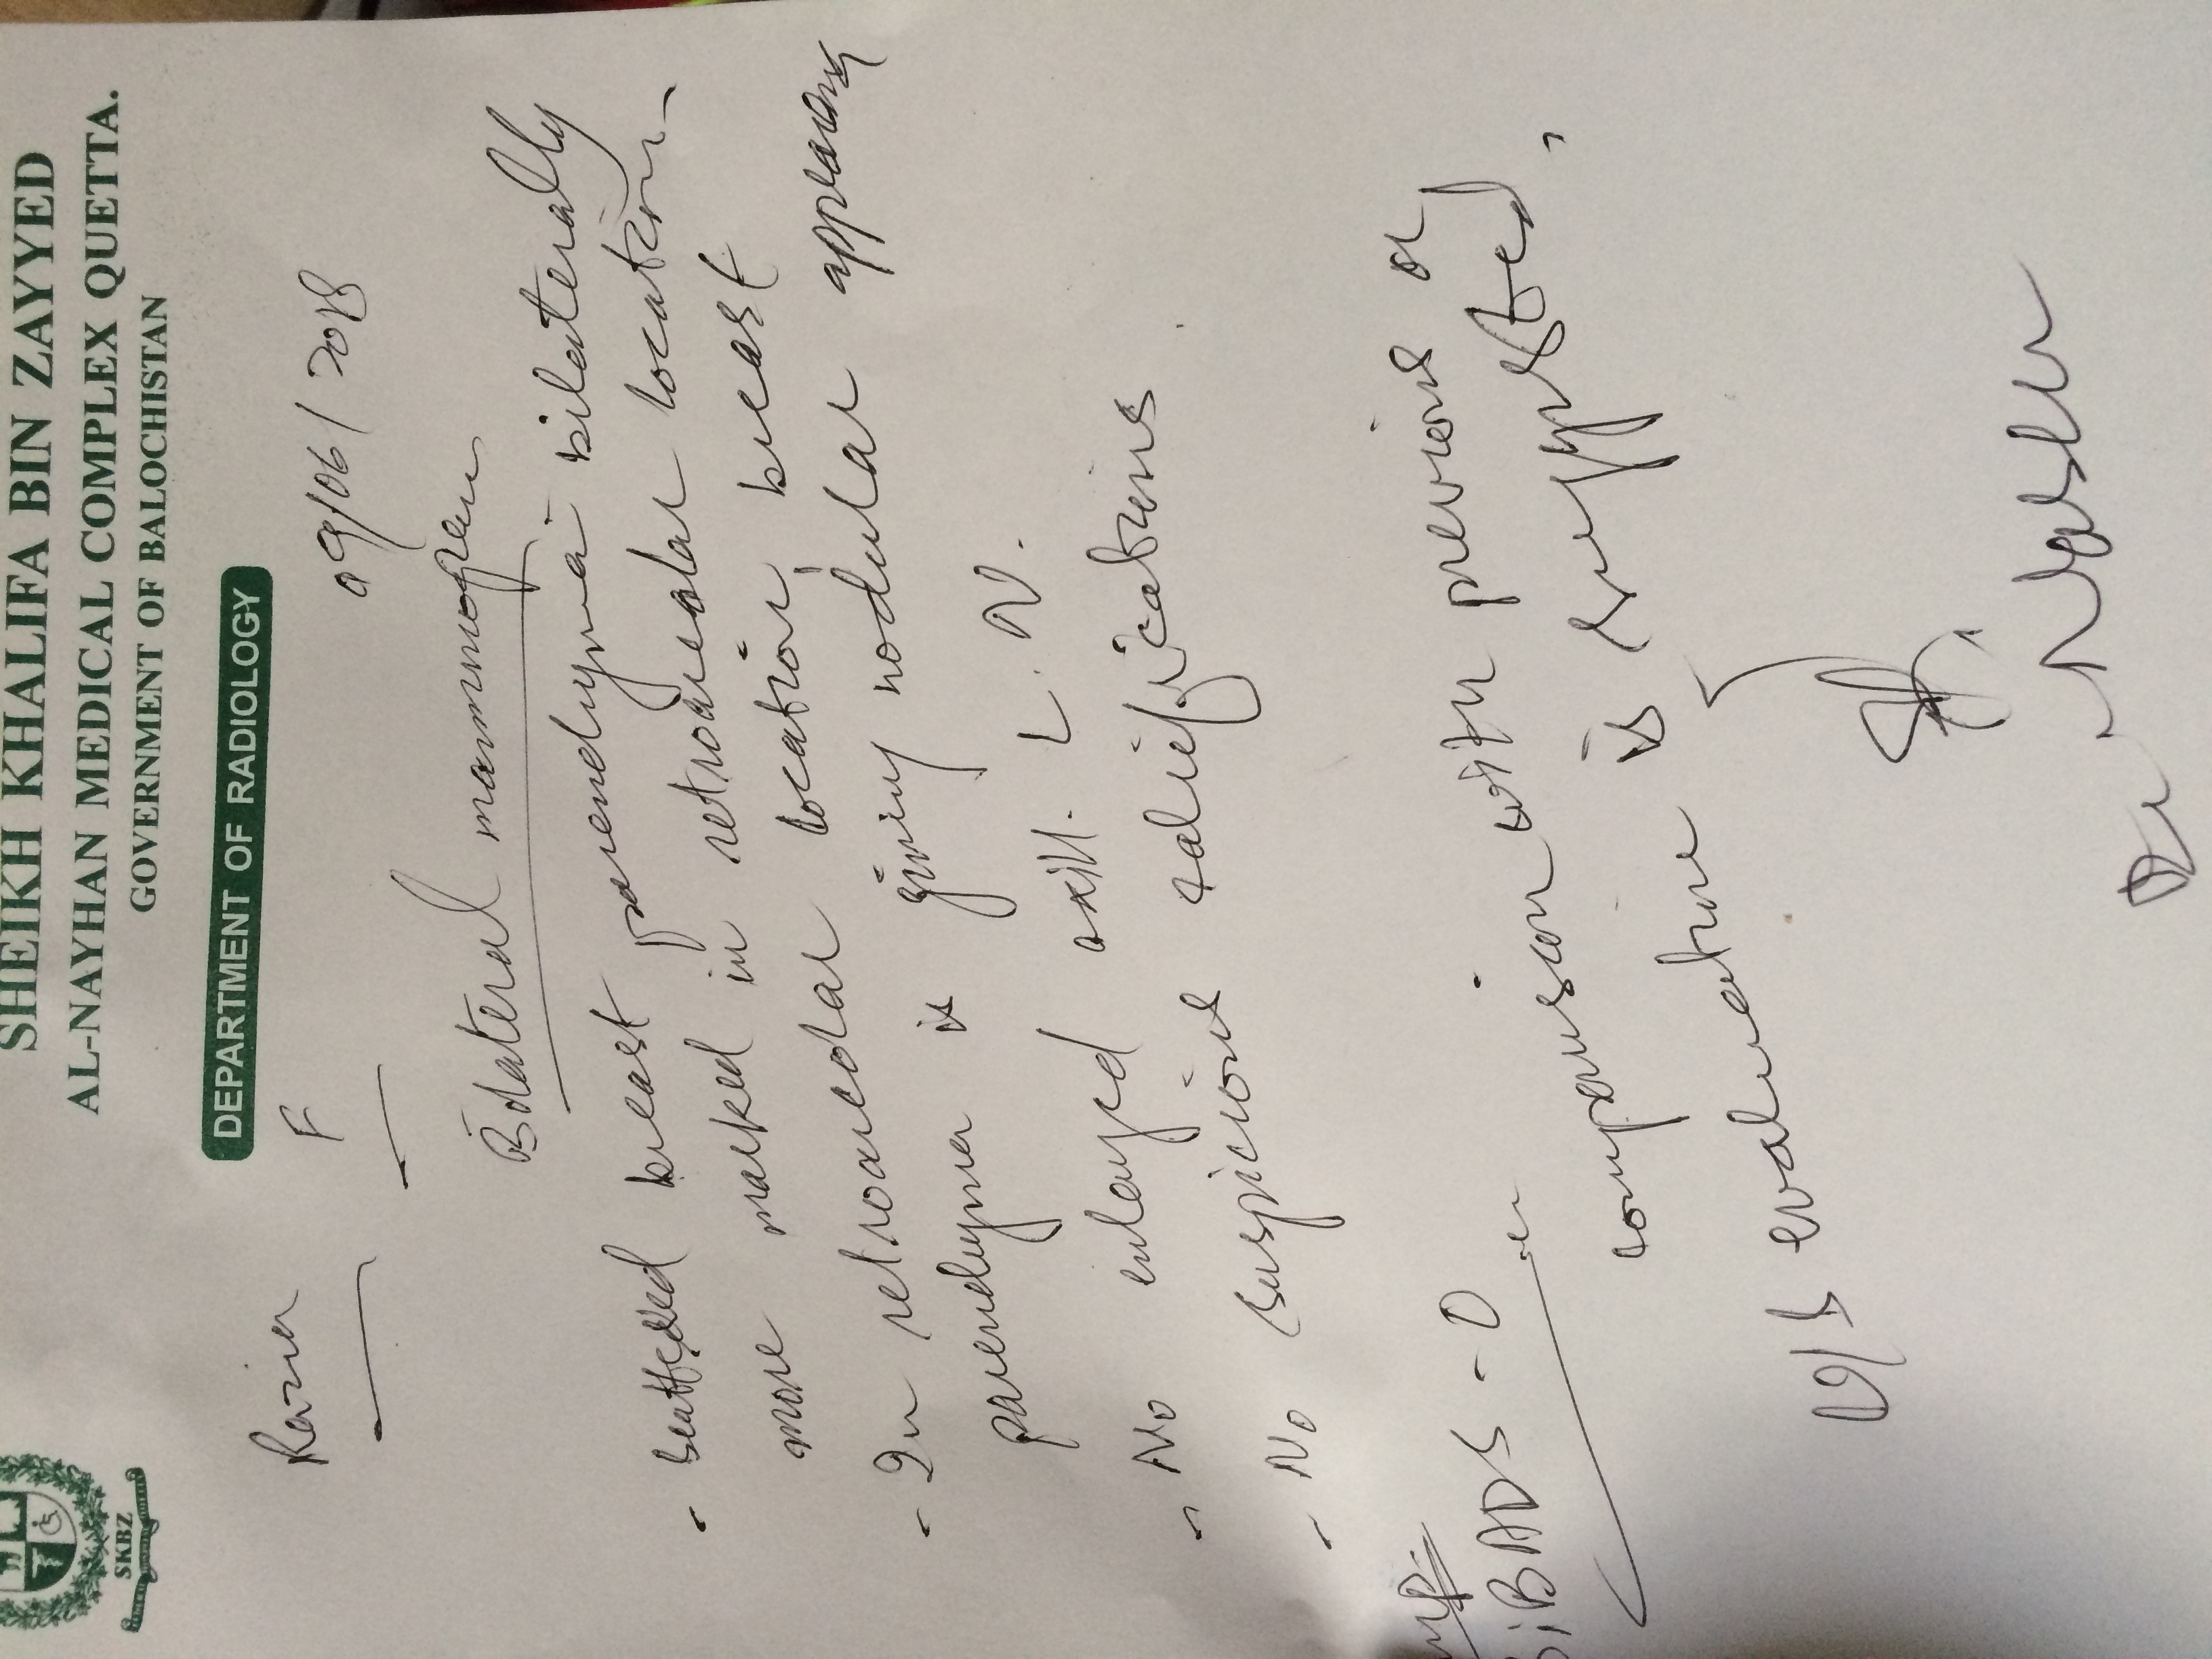 SHEIKH KHALIFA BIN ZAYYED
AL-NAYHAN MEDICAL COMPLEX QUETTA.
GOVERNMENT OF BALOCHISTAN
SKBZ
DEPARTMENT OF RADIOLOGY
F 09/06/2018
Bilateral mammogram
- Scattered breast parenchyma bilaterally
more marked in retroareolar location.
- In retroareolar location breast
parenchyma is giving nodular appearance
- No enlarged axill. L.N.
- No suspicious calcifications
BiBADS - 0
comparison with previous or
U/S evaluation is suggested.
Dr. Nasir